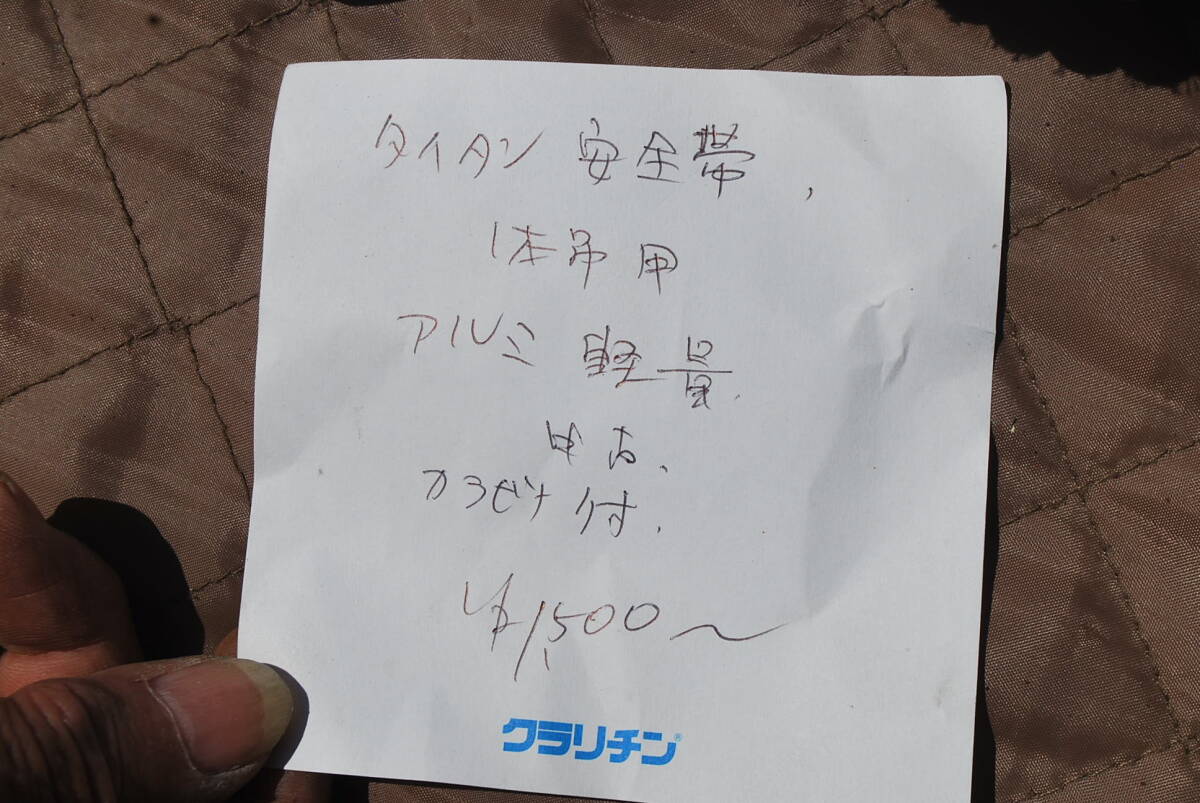 タイタン 安全帯,
1本吊用
アルミ 軽量.
中古.
カラビナ付.
¥1,500〜
クラリチン®